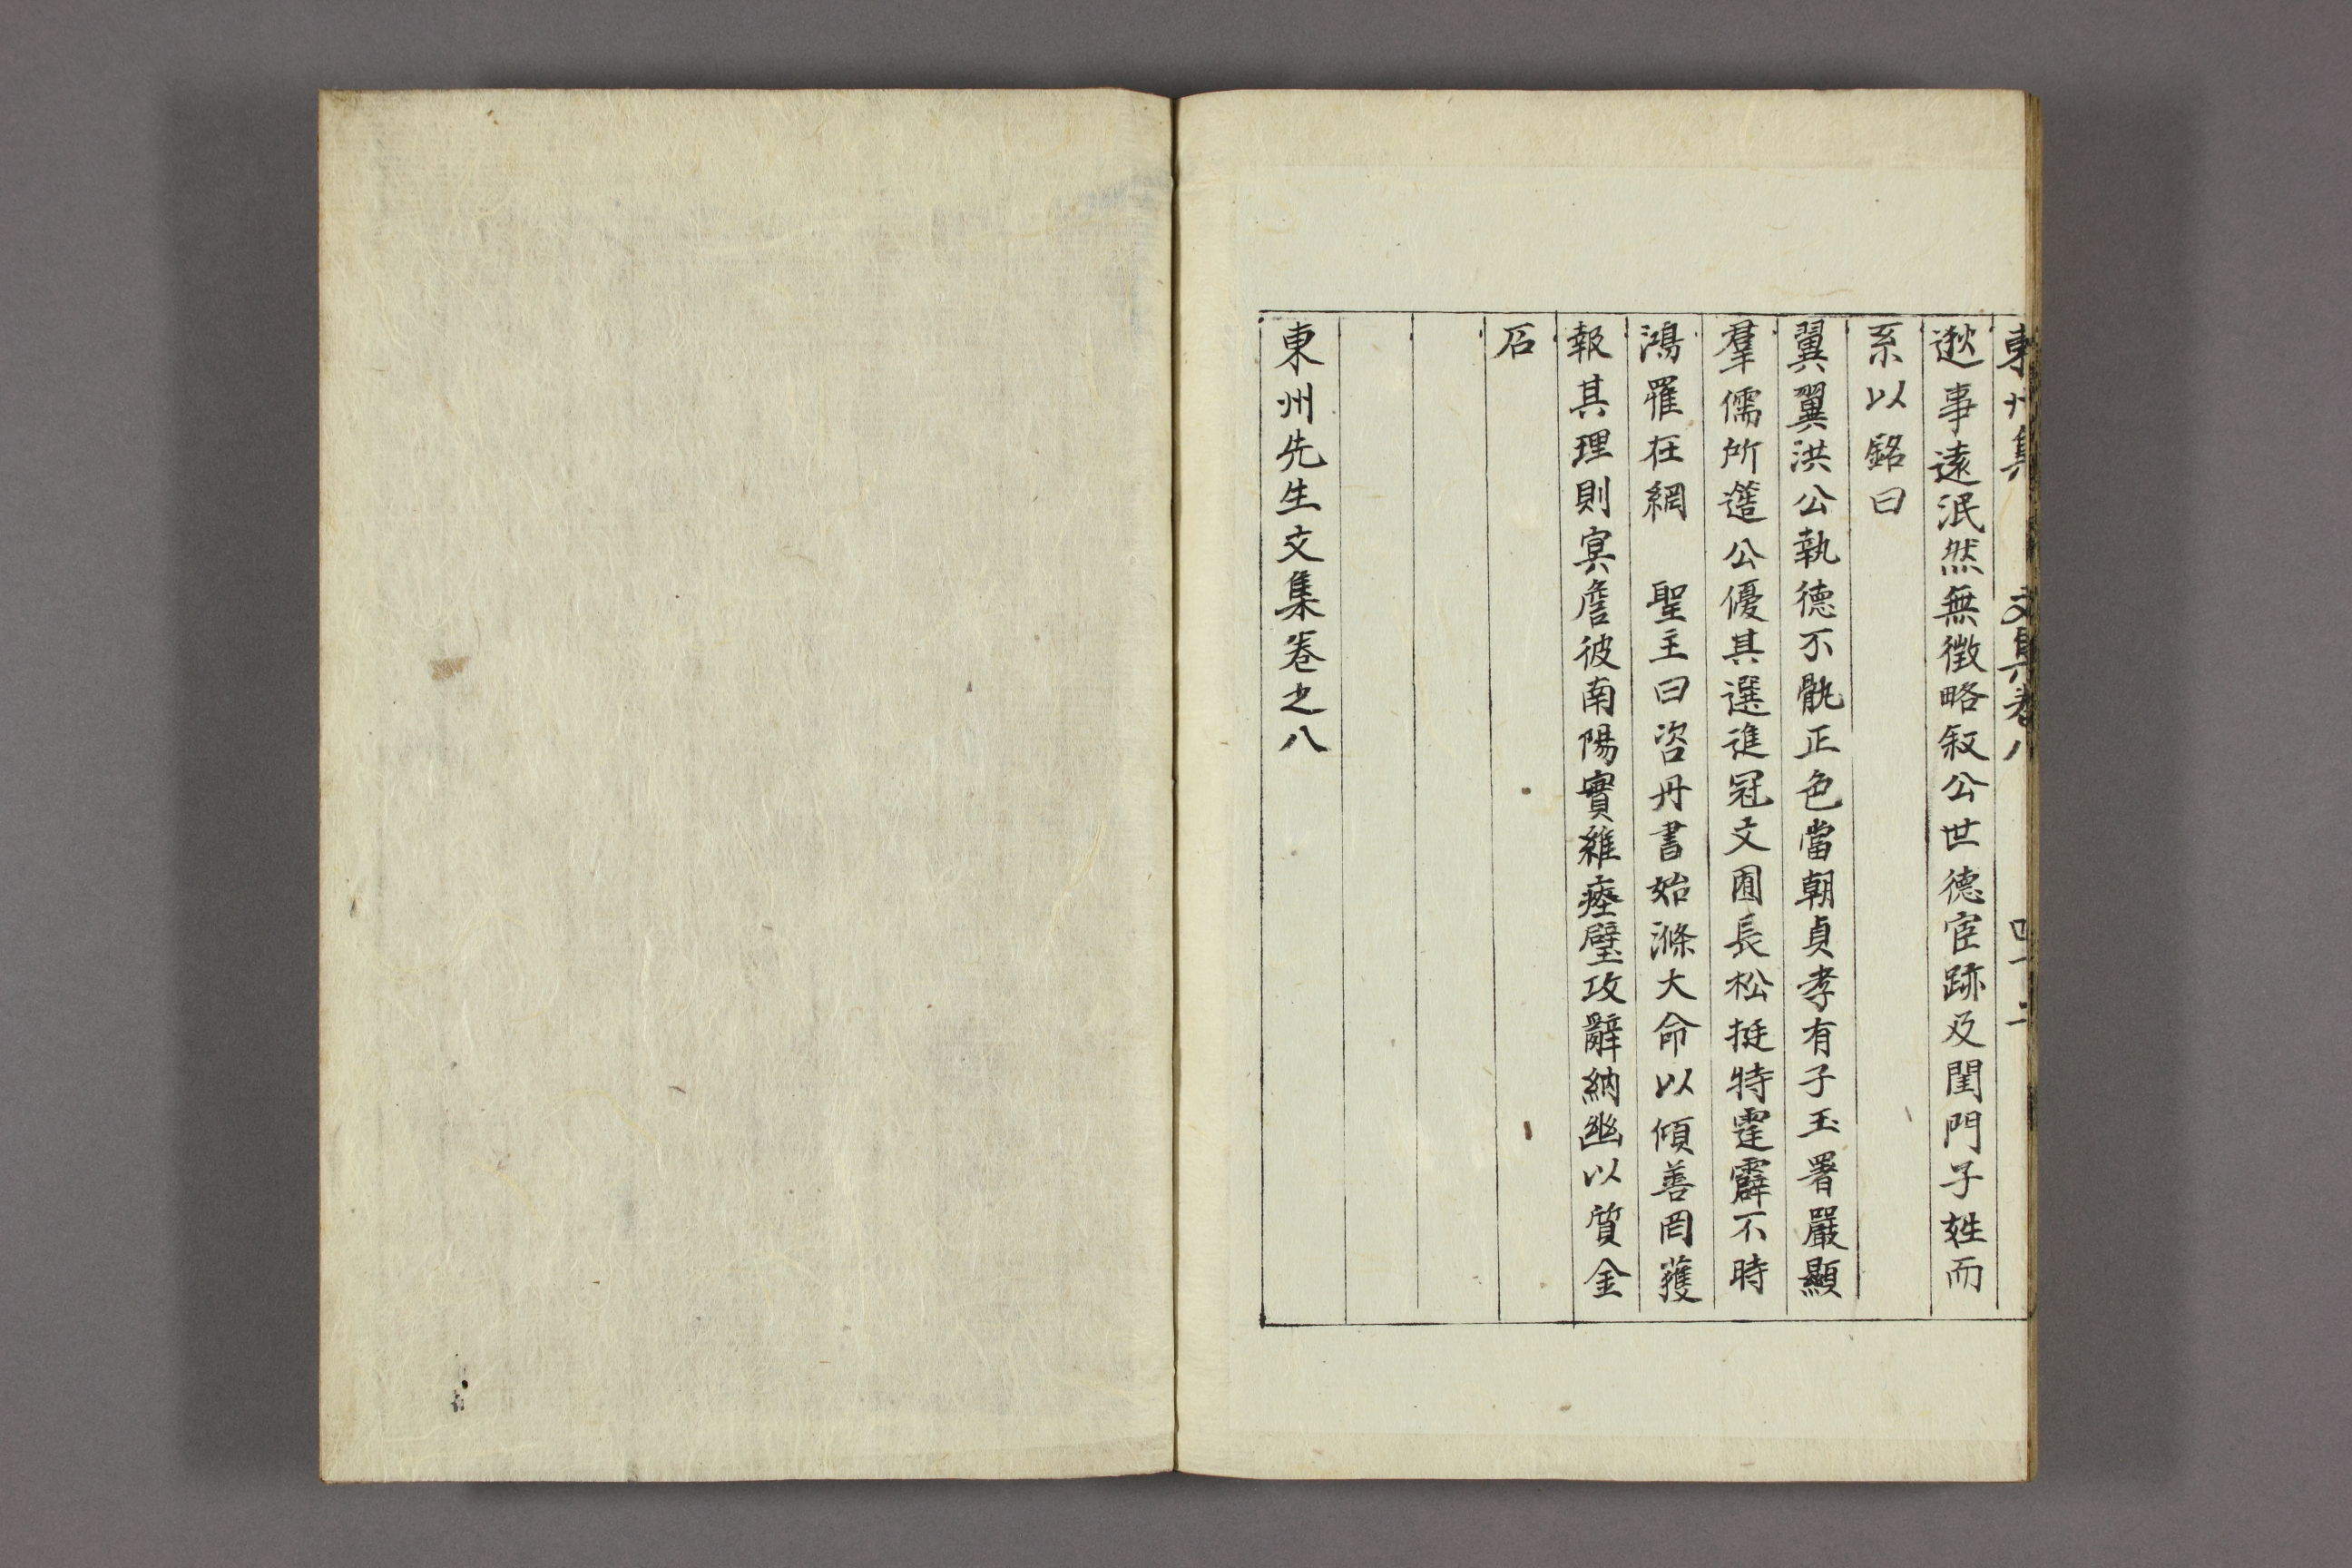 東州集　文集卷八　四十二
逖事遠泯然無徵略叙公世德宦跡及閨門子姓而
系以銘曰
翼翼洪公執德不骩正色當朝貞孝有子玉署嚴顯
羣儒所簉公優其選進冠文囿長松挺特霆霹不時
鴻罹在網　聖主曰咨丹書始滌大命以傾善罔獲
報其理則冥詹彼南陽實維瘞璧攻辭納幽以質金
石
東州先生文集卷之八